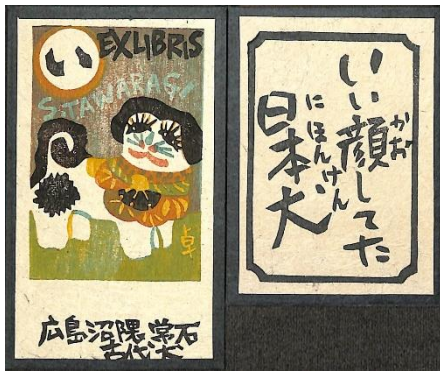 い
EXLIBRIS
S.TAWARAGI
卓
広島沼隈常石
古代犬
いい顔してた
かお
日本犬
にほんけん